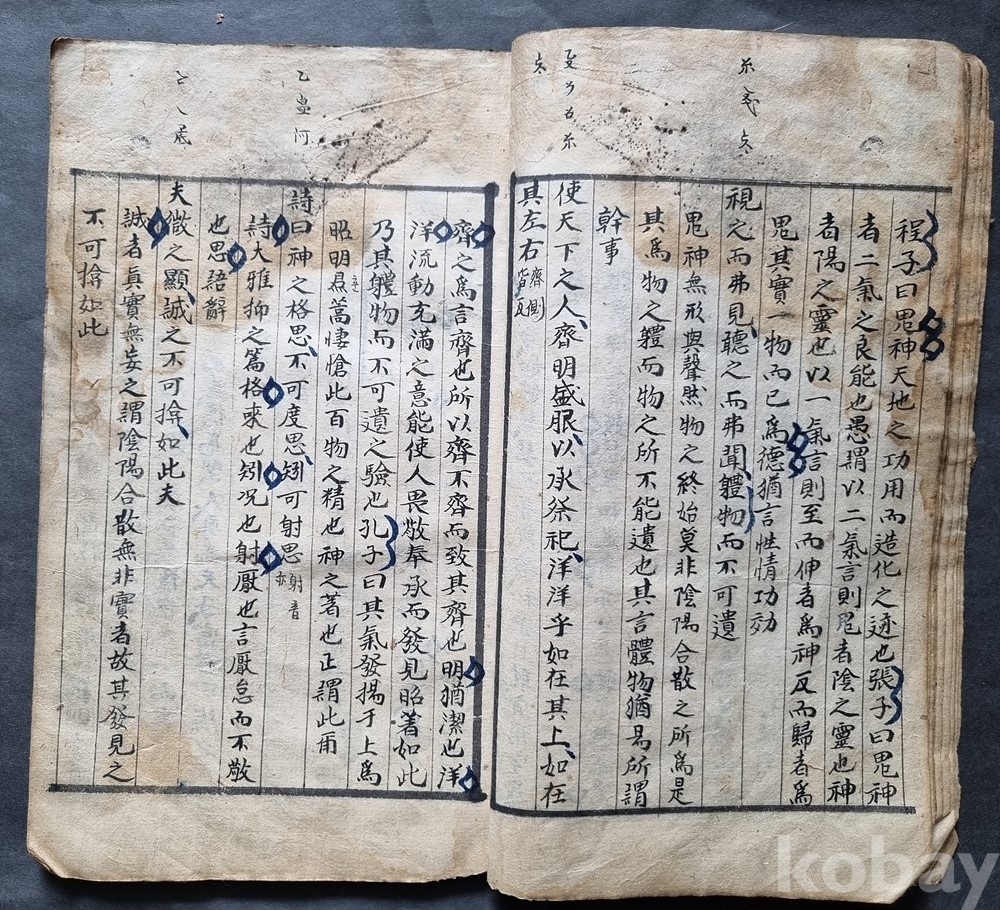 程子曰鬼神天地之功用而造化之迹也張子曰鬼神
者二氣之良能也愚謂以二氣言則鬼者陰之靈也神
者陽之靈也以一氣言則至而伸者爲神反而歸者爲
鬼其實一物而已爲德猶言性情功効
視之而弗見聽之而弗聞體物而不可遺
鬼神無形與聲然物之終始莫非陰陽合散之所爲是
其爲物之體而物之所不能遺也其言體物猶易所謂
幹事
使天下之人齊明盛服以承祭祀洋洋乎如在其上如在
其左右齊側皆反
齊之爲言齊也所以齊不齊而致其齊也明猶潔也洋
洋流動充滿之意能使人畏敬奉承而發見昭著如此
乃其軆物而不可遺之驗也孔子曰其氣發揚于上爲
昭明焄蒿悽愴此百物之精也神之著也正謂此甭
詩曰神之格思不可度思矧可射思射音亦
詩大雅抑之篇格來也矧况也射厭也言厭怠而不敬
也思語辭
夫微之顯誠之不可揜如此夫
誠者眞實無妄之謂陰陽合散無非實者故其發見之
不可揜如此
kobay